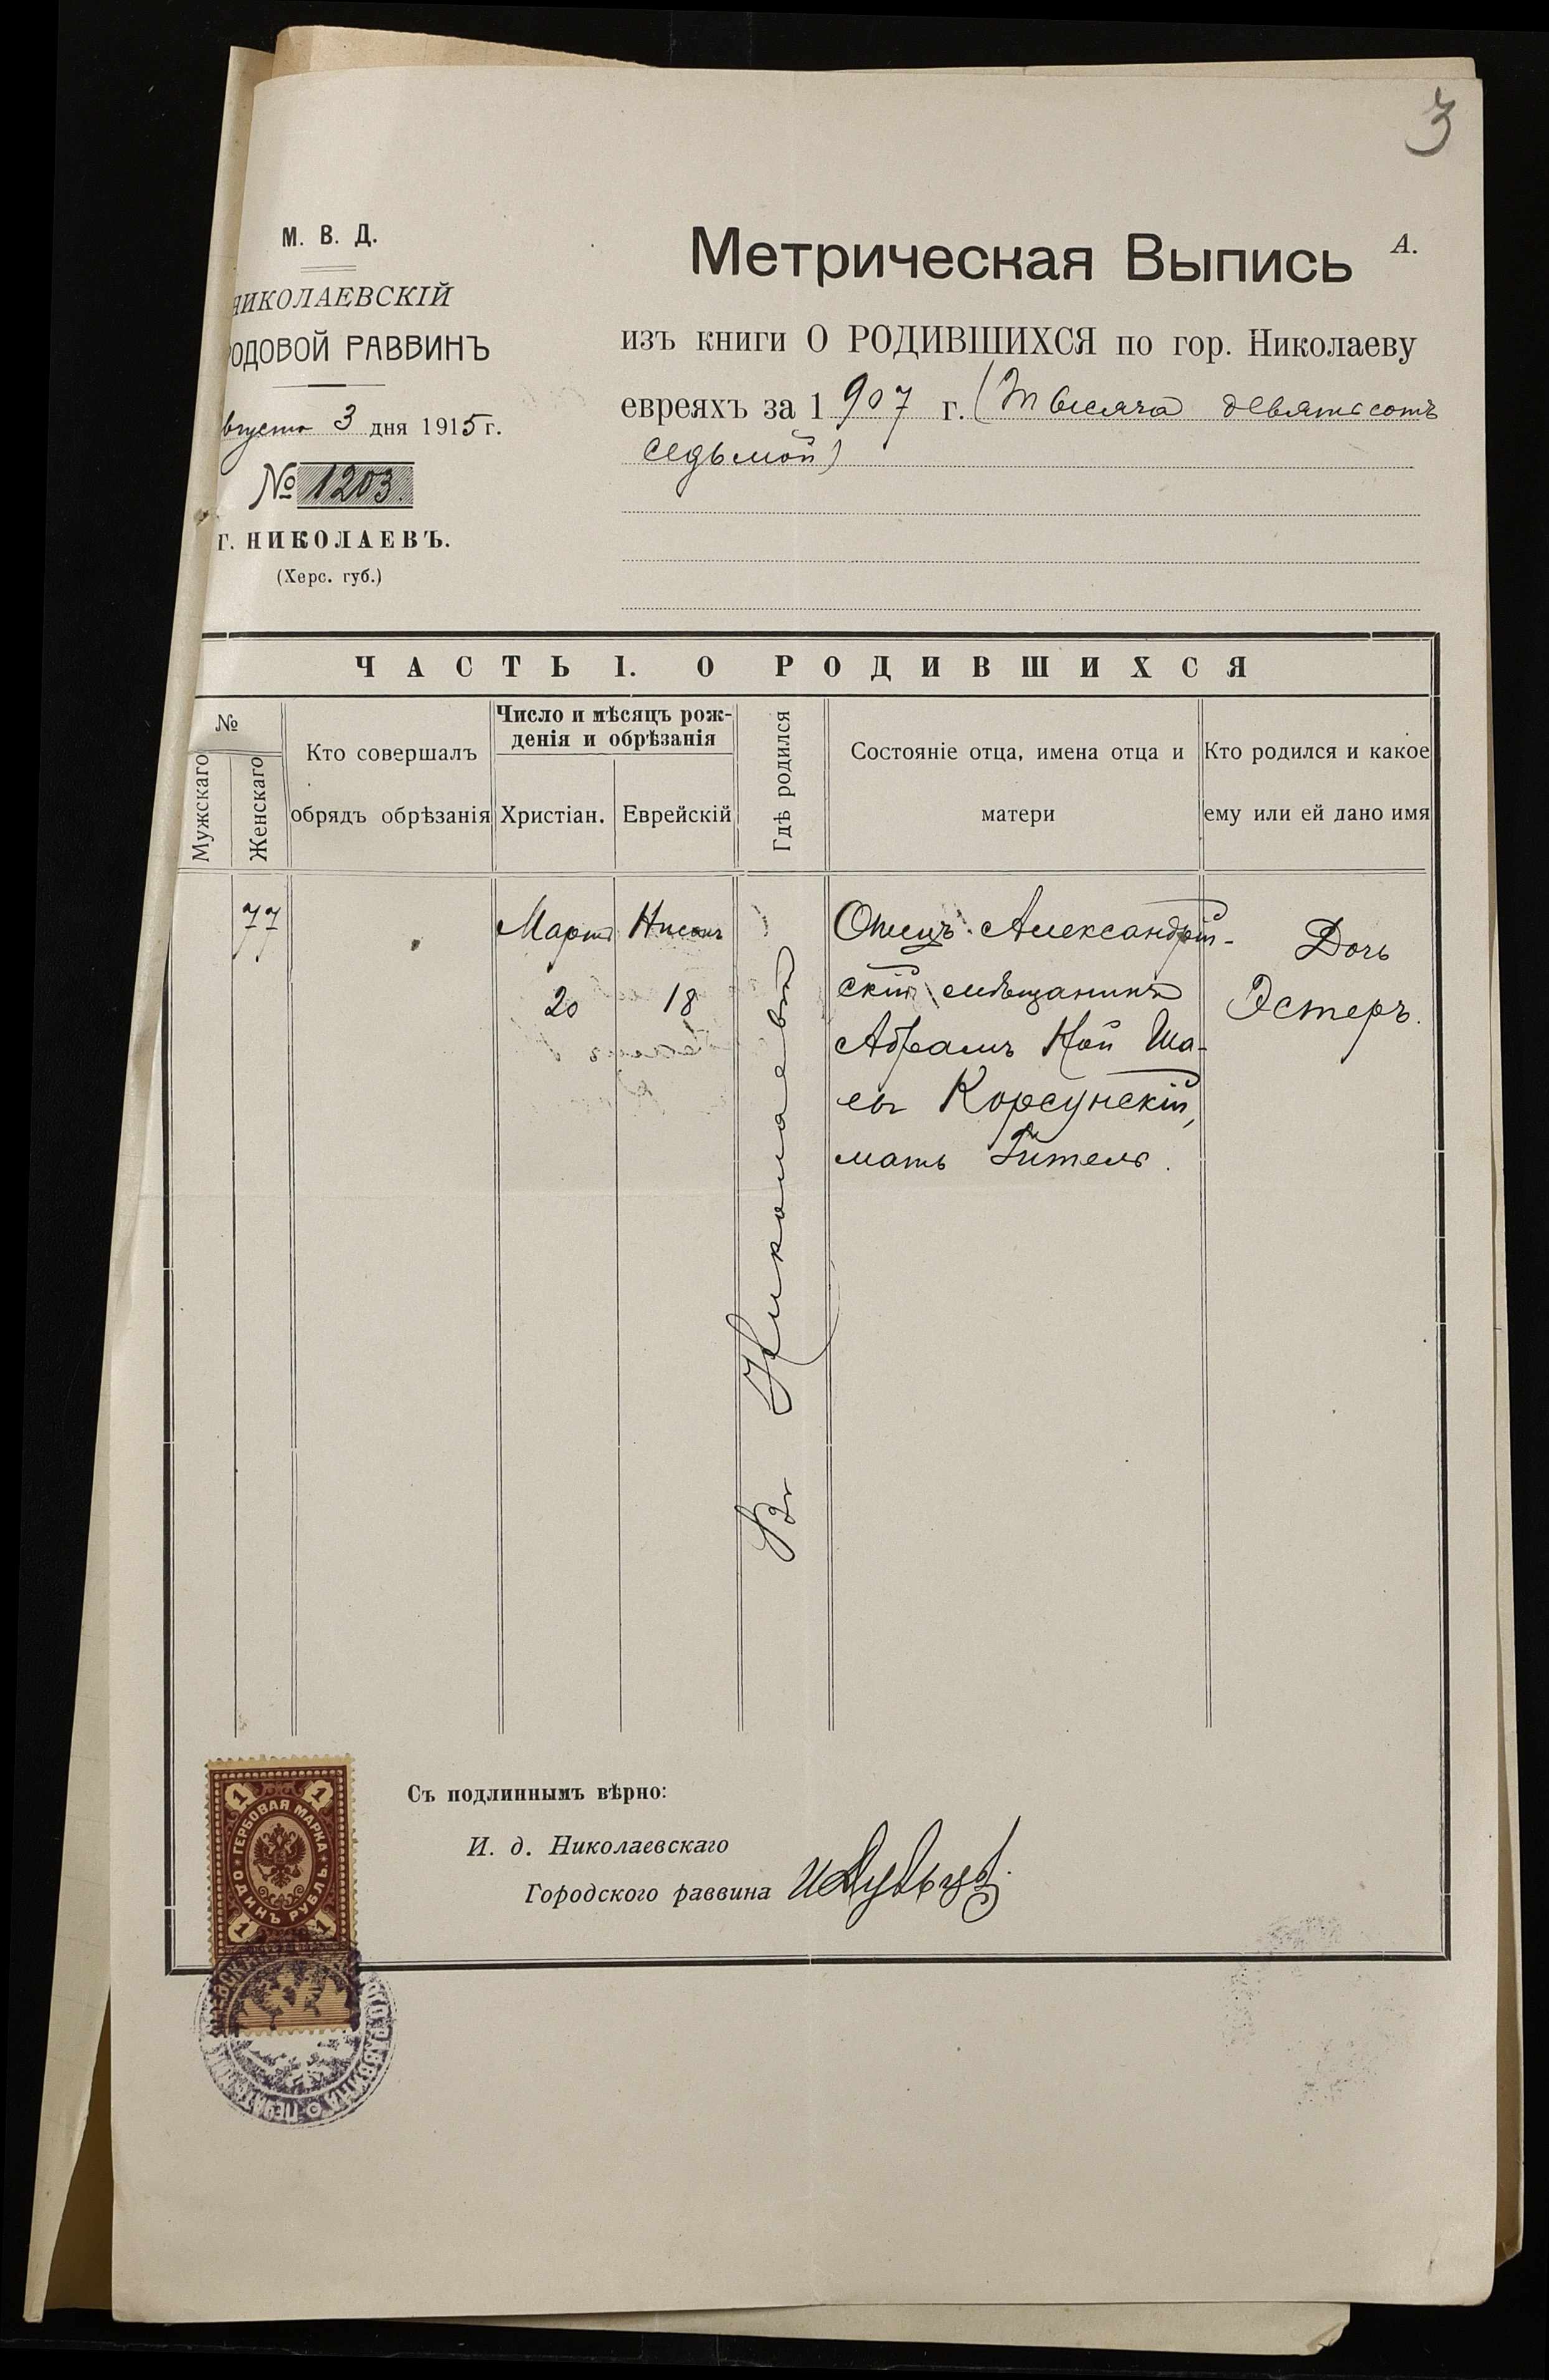 3
М. В. Д.
НИКОЛАЕВСКІЙ
РОДОВОЙ РАВВИНЪ
вгуста 3 дня 1915 г.
№ 1203.
г. НИКОЛАЕВЪ.
(Херс. губ.)
Метрическая Выпись А.
изъ книги О РОДИВШИХСЯ по гор. Николаеву
евреяхъ за 1907 г. (Тысяча девятьсотъ
седьмой)
ЧАСТЬ I. О РОДИВШИХСЯ
№
Мужскаго
Женскаго
Кто совершалъ
обрядъ обрѣзанія
Число и мѣсяцъ рож-
денія и обрѣзанія
Христіан.
Еврейскій
Гдѣ родился
Состояніе отца, имена отца и
матери
Кто родился и какое
ему или ей дано имя
77
Мартъ
20
Нисонъ
18
Въ Николаевѣ
Отецъ Александрій-
скій мѣщанинъ
Абрамъ Ной Ша-
евъ Корсунскій,
мать Гитель.
Дочь
Эстеръ.
Съ подлиннымъ вѣрно:
И. д. Николаевскаго
Городского раввина
1 1
ГЕРБОВАЯ МАРКА
ОДИНЪ РУБЛЬ
1 1